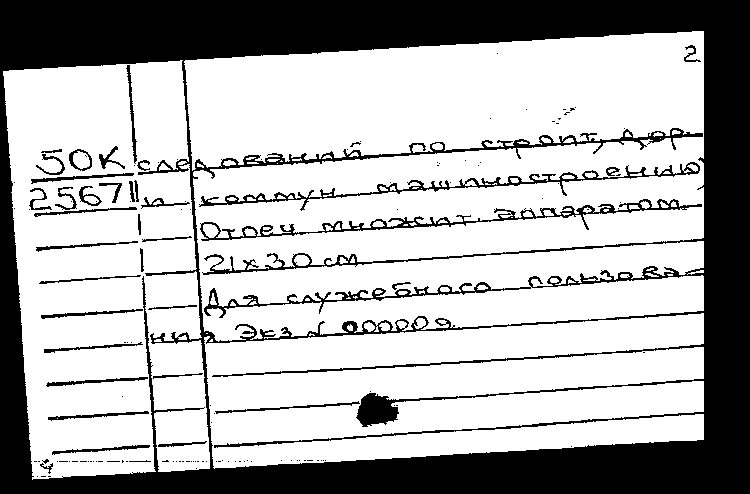 2
50К следований по строит., дор.
25671 и коммун. машиностроению)
Отпеч. множит. аппаратом.
21x30 см
Для служебного пользова-
ния Экз № 000009